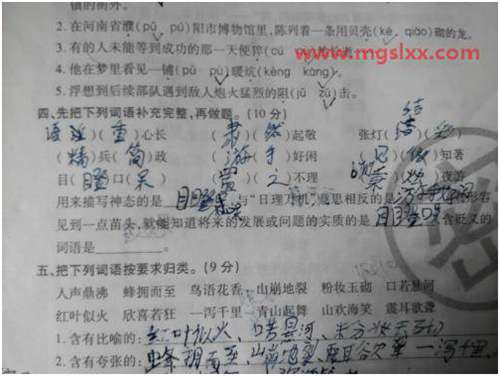 镇的街外。
2.在河南省濮(pū pú)阳市博物馆里,陈列着一条用贝壳(ké qiào)砌的龙。
www.mgslxx.com
3.有的人未能等到成功的那一天便猝(
4.他在梦里看见一铺(pū pù)暖炕(kèng kàng)。
5.浮想到后续部队遇到敌人炮火猛烈的阻(jū zǔ)击。
四、先把下列词语补充完整,再做题。(10分)
语(重)心长 (肃)(然)起敬 张灯(结)(彩)
(精)兵(简)政 (游)手)好闲 (见)(微)知著
目(瞪)口(呆) (置)(之)不理 夜游
用来描写神态的是 目瞪口呆 与“日理万机”意思相反的是 游手好闲 形容
见到一点苗头,就能知道将来的发展或问题的实质的是 含贬义的
词语是。
五、把下列词语按要求归类。(9分)
人声鼎沸 蜂拥而至 鸟语花香 山崩地裂 粉妆玉砌 口若悬河
红叶似火 欣喜若狂 一泻千里 青山起舞 山欢海笑 震耳欲聋
1.含有比喻的:红叶似火、口若悬河、
2.含有夸张的:山崩地裂 震耳欲聋 一泻千里